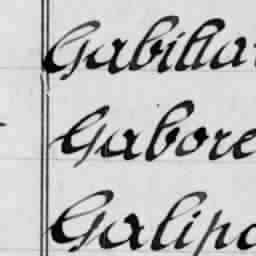 Gabillar
Gabore
Galipa